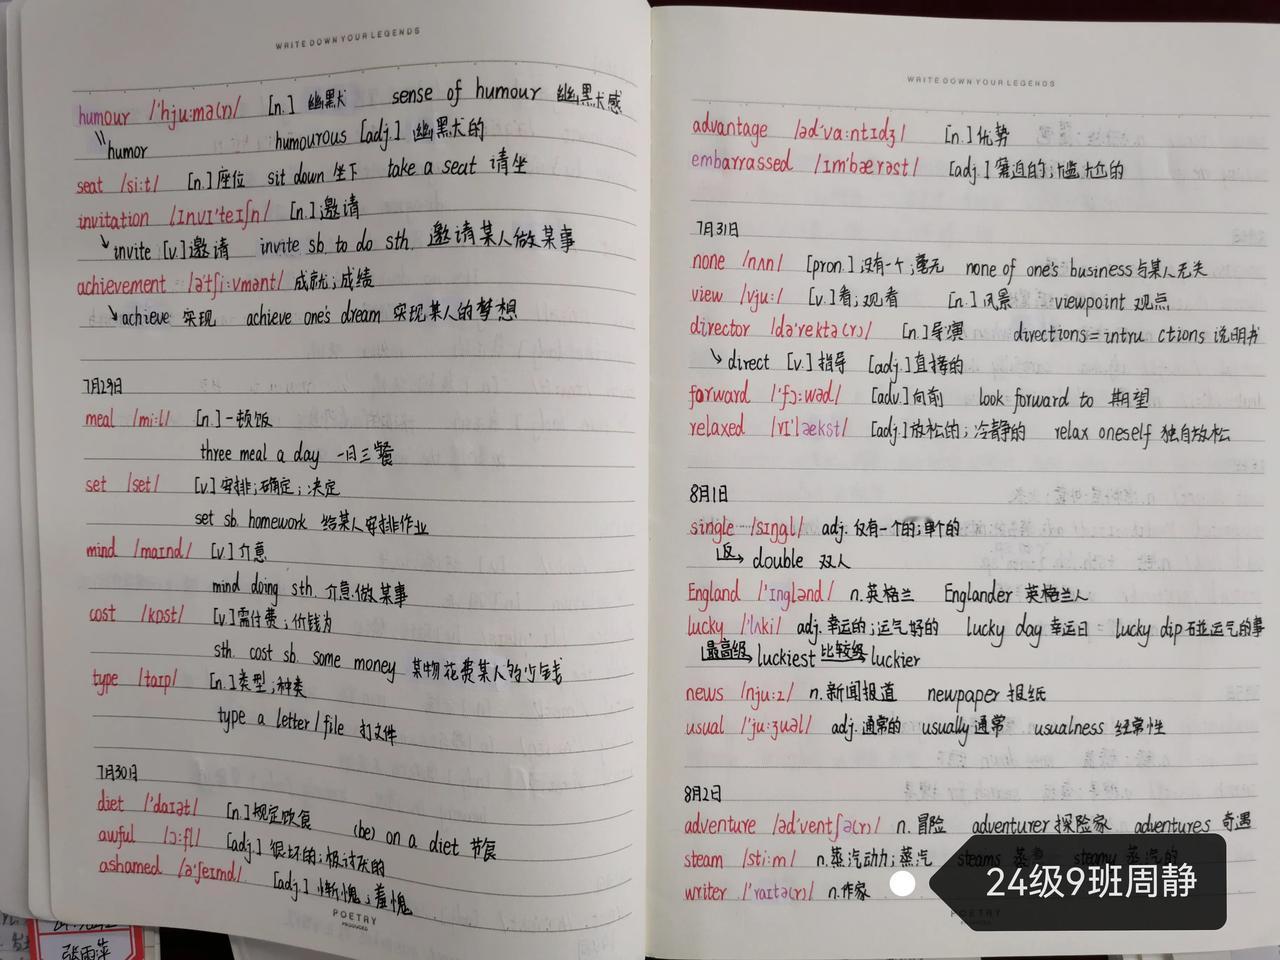 WRITE DOWN YOUR LEGENDS
humour /'hju:mə(r)/ [n.] 幽默 sense of humour 幽默感
humor humourous [adj.] 幽默的
seat /si:t/ [n.]座位 sit down 坐下 take a seat 请坐
invitation /ɪnvɪ'teɪʃn/ [n.]邀请
invite [v.]邀请 invite sb. to do sth. 邀请某人做某事
achievement /ə'tʃi:vmənt/ 成就;成绩
achieve 实现 achieve one's dream 实现某人的梦想
7月29日
meal /mi:l/ [n.]一顿饭
three meal a day 一日三餐
set /set/ [v.]安排;确定;决定
set sb. homework 给某人安排作业
mind /maɪnd/ [v.]介意
mind doing sth. 介意做某事
cost /kɒst/ [v.]需付费;价钱为
sth. cost sb. some money 某物花费某人多少钱
type /taɪp/ [n.]类型;种类
type a letter/file 打文件
7月30日
diet /'daɪət/ [n.]规定饮食 (be) on a diet 节食
awful /ɔ:fl/ [adj.]很坏的;极讨厌的
ashamed /ə'ʃeɪmd/ [adj.]惭愧;羞愧
POETRY
PRODUCED
张雨萍
WRITE DOWN YOUR LEGENDS
advantage /əd'va:ntɪdʒ/ [n.]优势
embarrassed /ɪm'bærəst/ [adj.]窘迫的;尴尬的
7月31日
none /nʌn/ [pron.]没有一个;毫无 none of one's business与某人无关
view /vju:/ [v.]看;观看 [n.]风景 viewpoint 观点
director /də'rektə(r)/ [n.]导演 directions=intru ctions 说明书
direct [v.]指导 [adj.]直接的
forward /'fɔ:wəd/ [adv.]向前 look forward to 期望
relaxed /rɪ'lækst/ [adj.]放松的;冷静的 relax oneself 独自放松
8月1日
single /sɪŋgl/ adj. 仅有一个的;单个的
反 double 双人
England /'ɪnglənd/ n.英格兰 Englander 英格兰人
lucky /'lʌki/ adj. 幸运的;运气好的 lucky day 幸运日 lucky dip 碰运气的事
最高级 luckiest 比较级 luckier
news /nju:z/ n.新闻报道 newpaper 报纸
usual /'ju:ʒuəl/ adj.通常的 usually通常 usualness 经常性
8月2日
adventure /əd'ventʃə(r)/ n. 冒险 adventurer探险家 adventures 奇遇
steam /sti:m/ n.蒸汽动力;蒸汽 steams 蒸煮 steamy 蒸汽的
writer /'raɪtə(r)/ n.作家
24级9班周静
POETRY